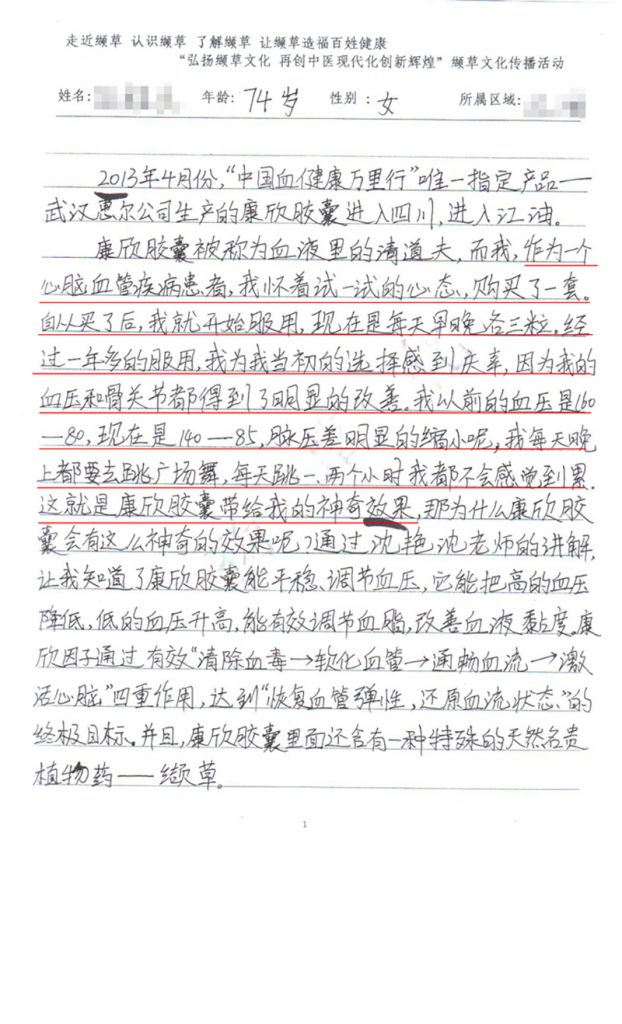 走近缬草 认识缬草 了解缬草 让缬草造福百姓健康
“弘扬缬草文化 再创中医现代化创新辉煌”缬草文化传播活动
姓名: 年龄: 74岁 性别: 女 所属区域:
2013年4月份,“中国血健康万里行”唯一指定产品——
武汉惠尔公司生产的康欣胶囊进入四川,进入江油。
康欣胶囊被称为血液里的清道夫,而我,作为一个
心脑血管疾病患者,我怀着试一试的心态,购买了一套。
自从买了后,我就开始服用,现在是每天早晚各三粒,经
过一年多的服用,我为我当初的选择感到庆幸,因为我的
血压和骨关节都得到了明显的改善。我以前的血压是160
—80,现在是140—85,脉压差明显的缩小呢,我每天晚
上都要去跳广场舞,每天跳一、两个小时我都不会感觉到累。
这就是康欣胶囊带给我的神奇效果,那为什么康欣胶
囊会有这么神奇的效果呢?通过沈艳沈老师的讲解,
让我知道了康欣胶囊能平稳、调节血压,它能把高的血压
降低,低的血压升高,能有效调节血脂,改善血液黏度。康
欣因子通过有效“清除血毒→软化血管→通畅血流→激
活心脑”四重作用,达到“恢复血管弹性,还原血流状态”的
终极目标。并且,康欣胶囊里面还含有一种特殊的天然名贵
植物药——缬草。
1